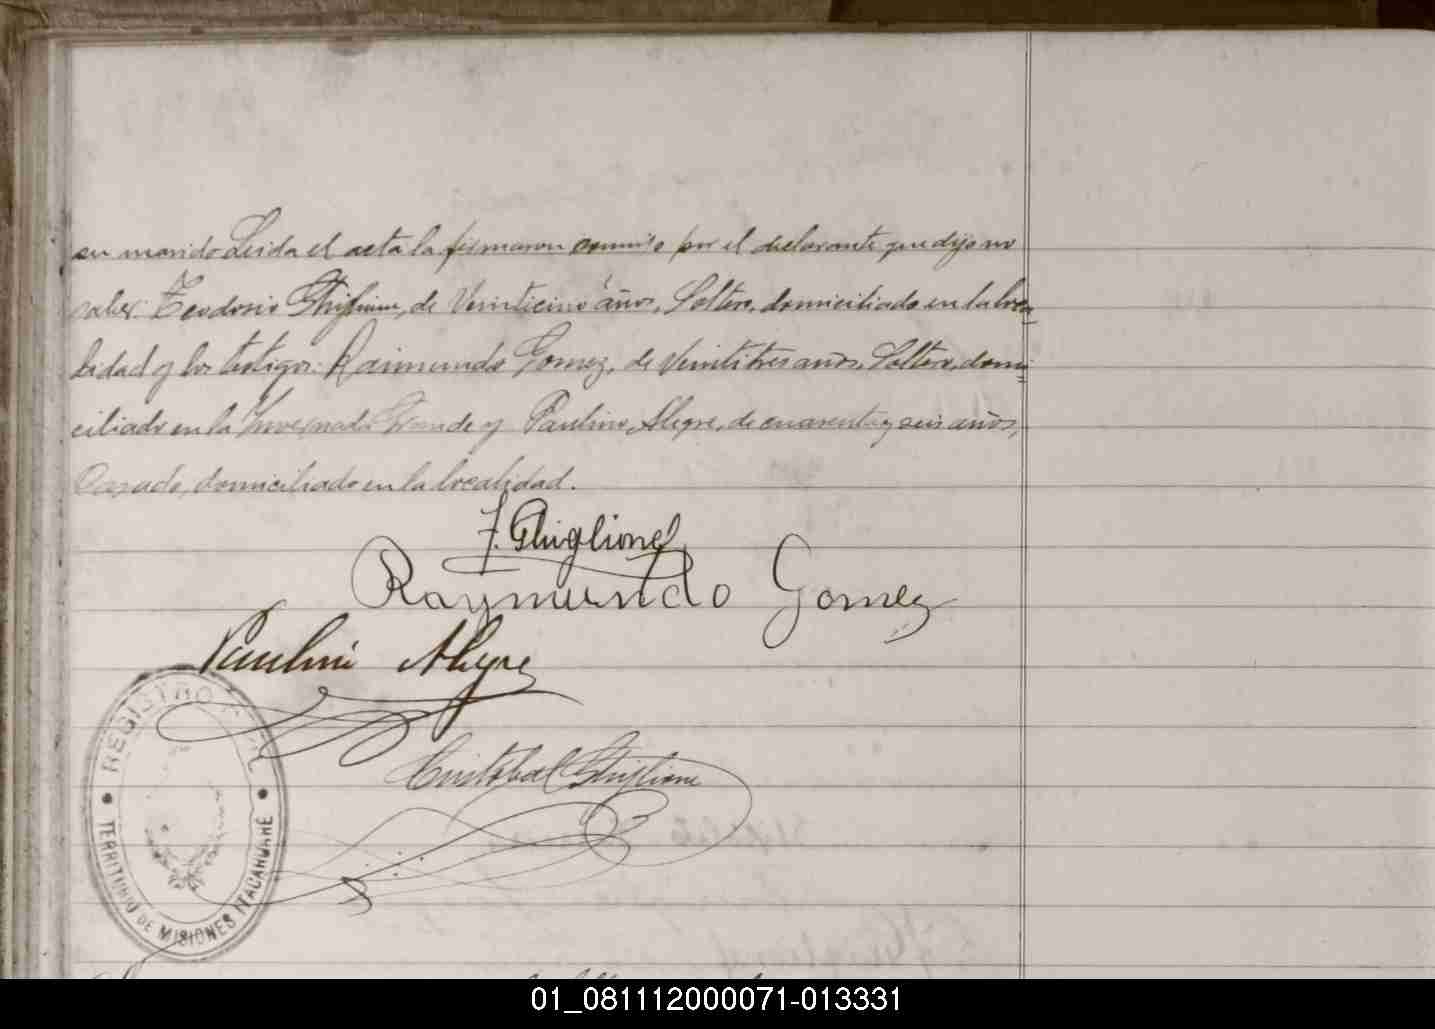 su marido Leida el acta la firmaron conmigo por el declarante que dijo no
saber: Teodosio Ghiglione, de Veinticinco años, Soltero, domiciliado en la loca
lidad y los testigos: Raimundo Gomez, de Veintitres años, Soltero, domi
ciliado en la Invernada Grande y Paulino Alegre, de cuarenta y seis años,
Casado, domiciliado en la localidad.
T. Ghiglione
Raymundo Gomez
Paulino Alegre
Cristobal Ghiglione
REGISTRO CIVIL
TERRITORIO DE MISIONES ITACARUARÉ
01_081112000071-013331